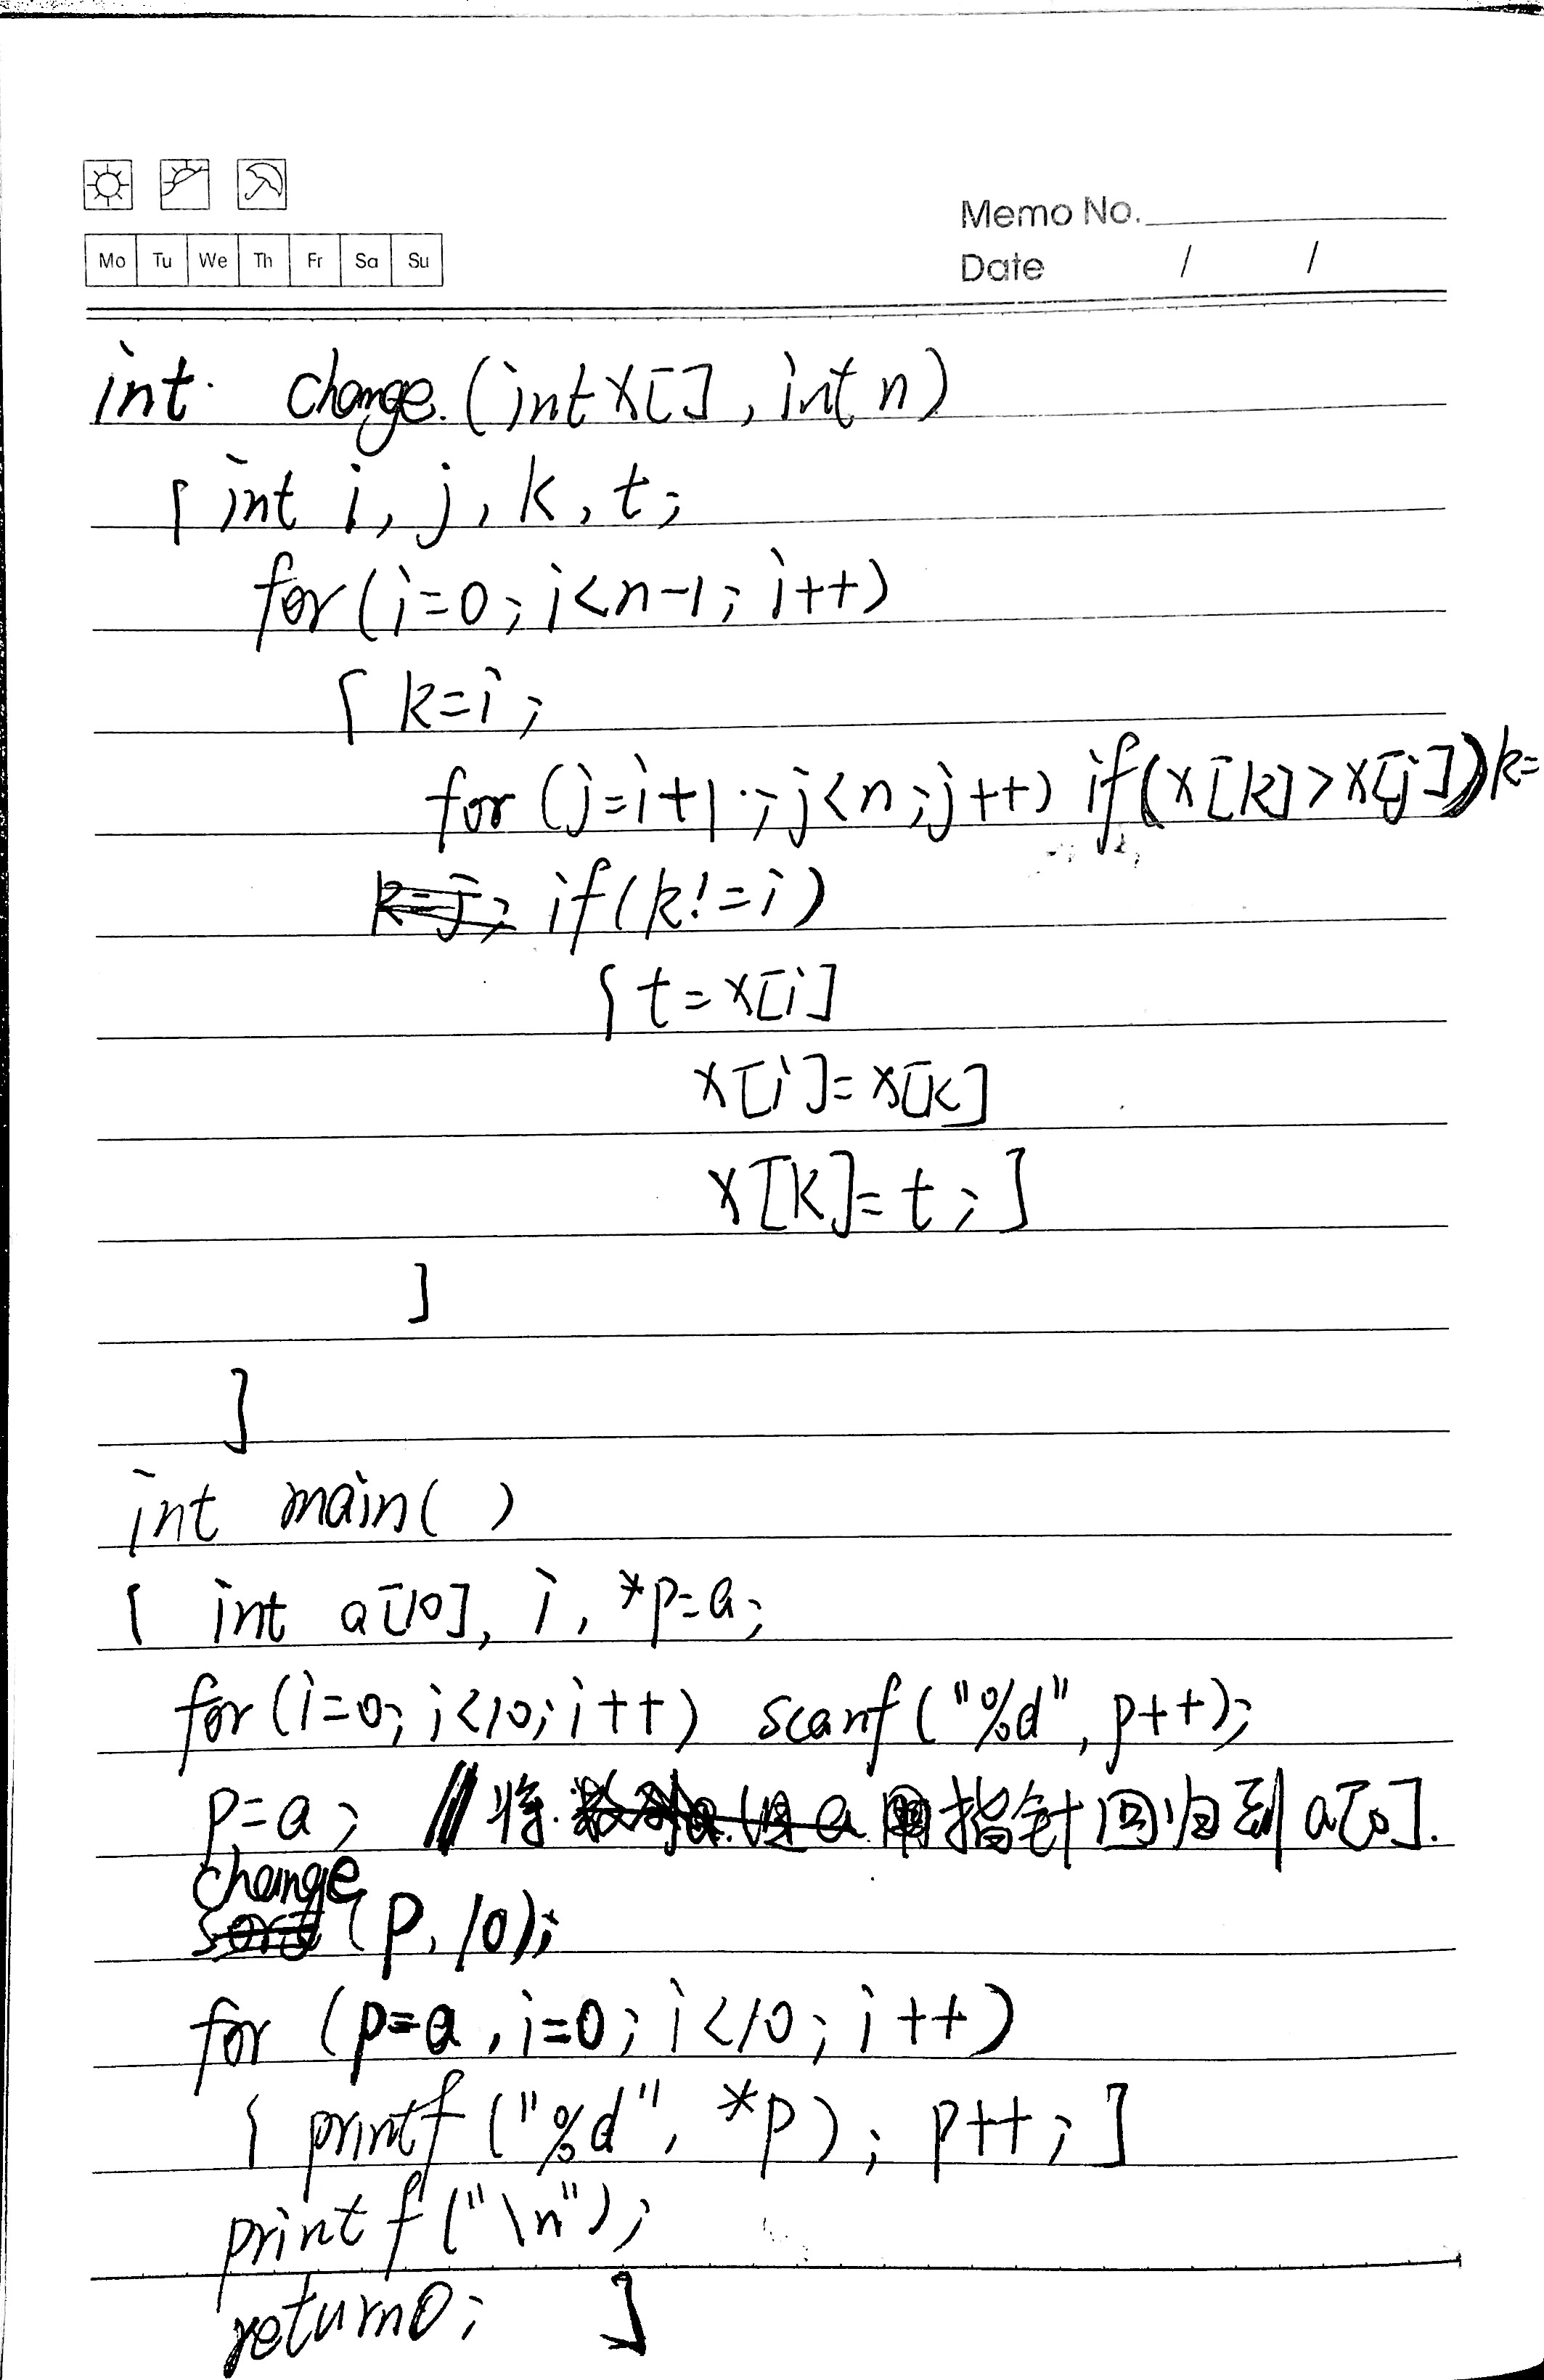 Memo No.
Mo Tu We Th Fr Sa Su
Date / /
int change (int x[], int n)
{ int i, j, k, t;
for (i=0; i<n-1; i++)
{ k=i;
for (j=i+1; j<n; j++) if (x[k]>x[j]) k=
k=j; if (k!=i)
{ t=x[i]
x[i]=x[k]
x[k]=t; }
}
}
int main( )
{ int a[10], i, *p=a;
for (i=0; i<10; i++) scanf ("%d", p++);
p=a; // 将 指针回归到 a[0].
change
sort (p, 10);
for (p=a, i=0; i<10; i++)
{ printf ("%d", *p); p++; }
printf ("\n");
return 0; }